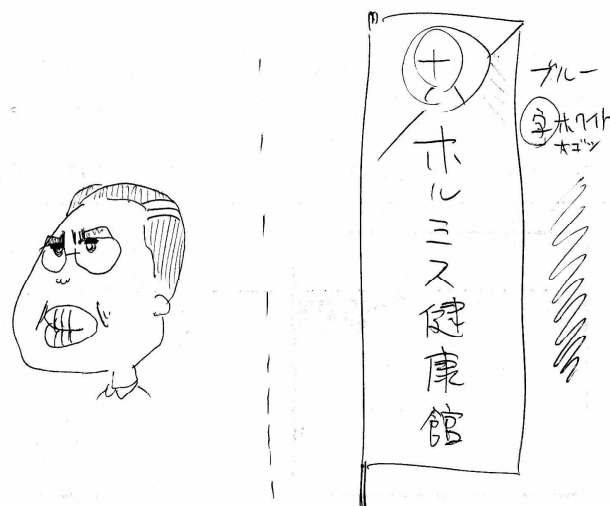 ホルミス健康館
ブルー
字 ホワイト